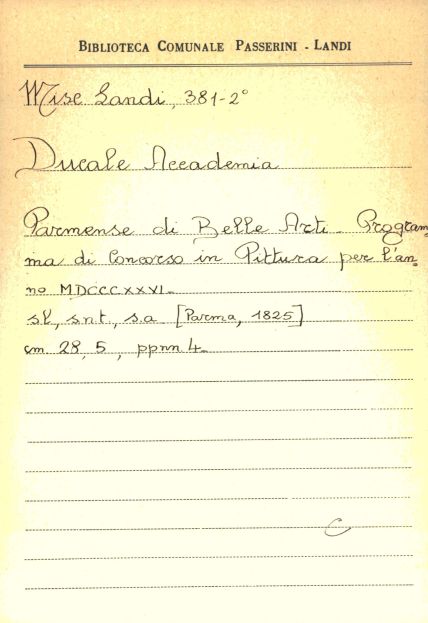 BIBLIOTECA COMUNALE PASSERINI - LANDI
Misc Landi, 381-2°
Ducale Accademia
Parmense di Belle Arti - Program
ma di Concorso in Pittura per l'an-
no MDCCCXXVI.
sl, snt, s.a [Parma, 1825]
cm 28,5, ppnn 4.
C